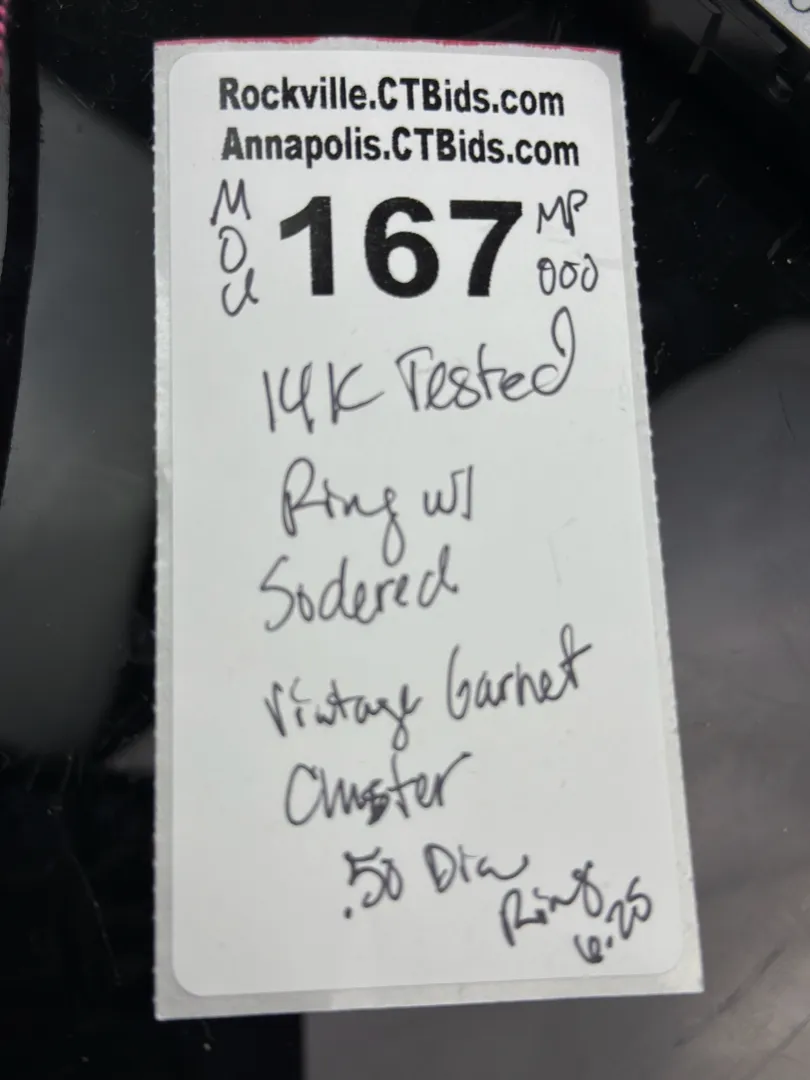 Rockville.CTBids.com
Annapolis.CTBids.com
MOU 167 MP 000
14K Tested
Ring w/
Sodered
Vintage Garnet
Cluster
.50 Dia
Ring
6.25